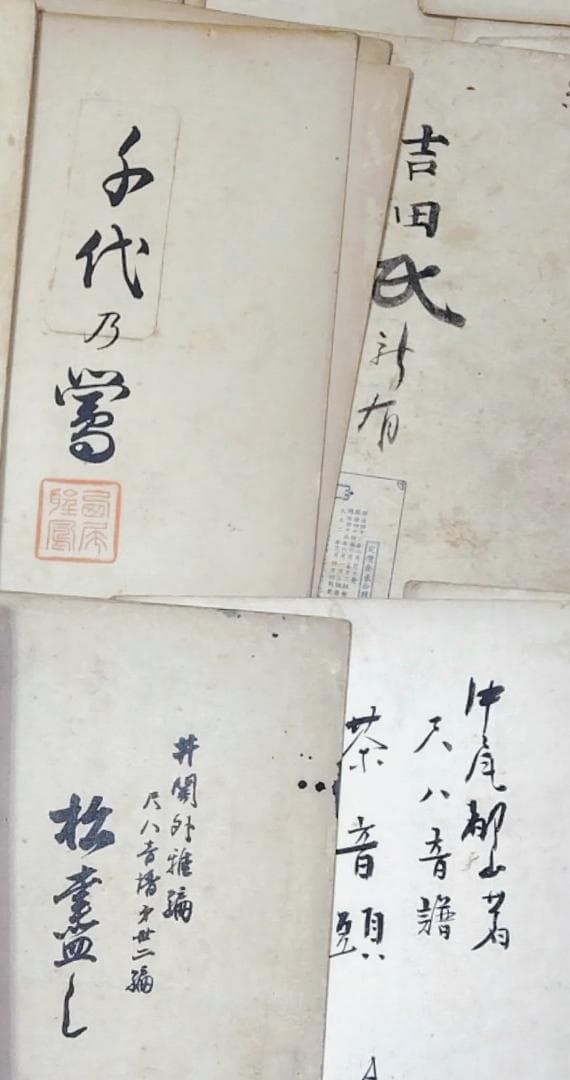 千代乃鶯
吉田氏
所有
井関外雅編
尺八音譜第卅二編
松盡し
中尾都山著
尺八音譜
茶音頭